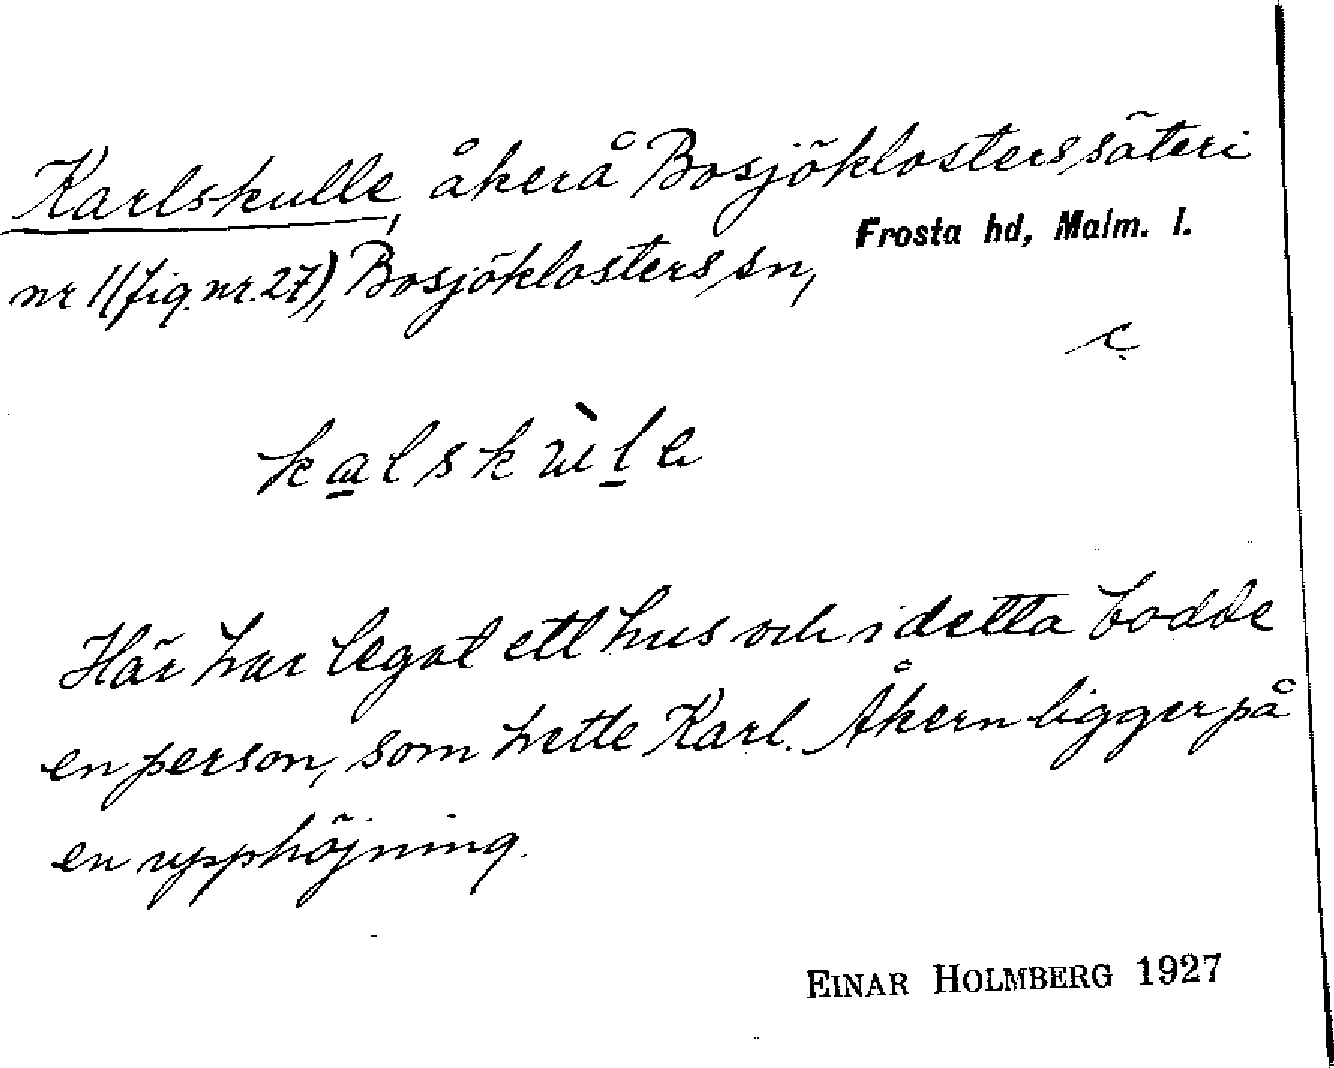 Karlskulle, åker å Bosjöklosters säteri
nr 1 (fig. nr. 27), Bosjöklosters sn, Frosta hd, Malm. l.
kalskùle
Här har legat ett hus och i detta bodde
en person, som hette Karl. Åkern ligger på
en upphöjning.
EINAR HOLMBERG 1927